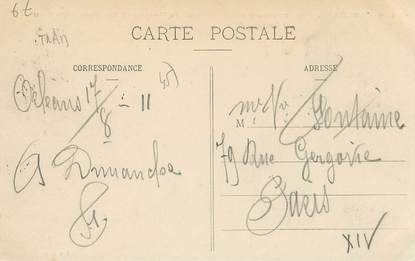 6t
CARTE POSTALE
CORRESPONDANCE
ADRESSE
Orléans 17
8 - 11
A Dimanche
M
Fontaine
79 Rue Gergovie
Paris
XIV